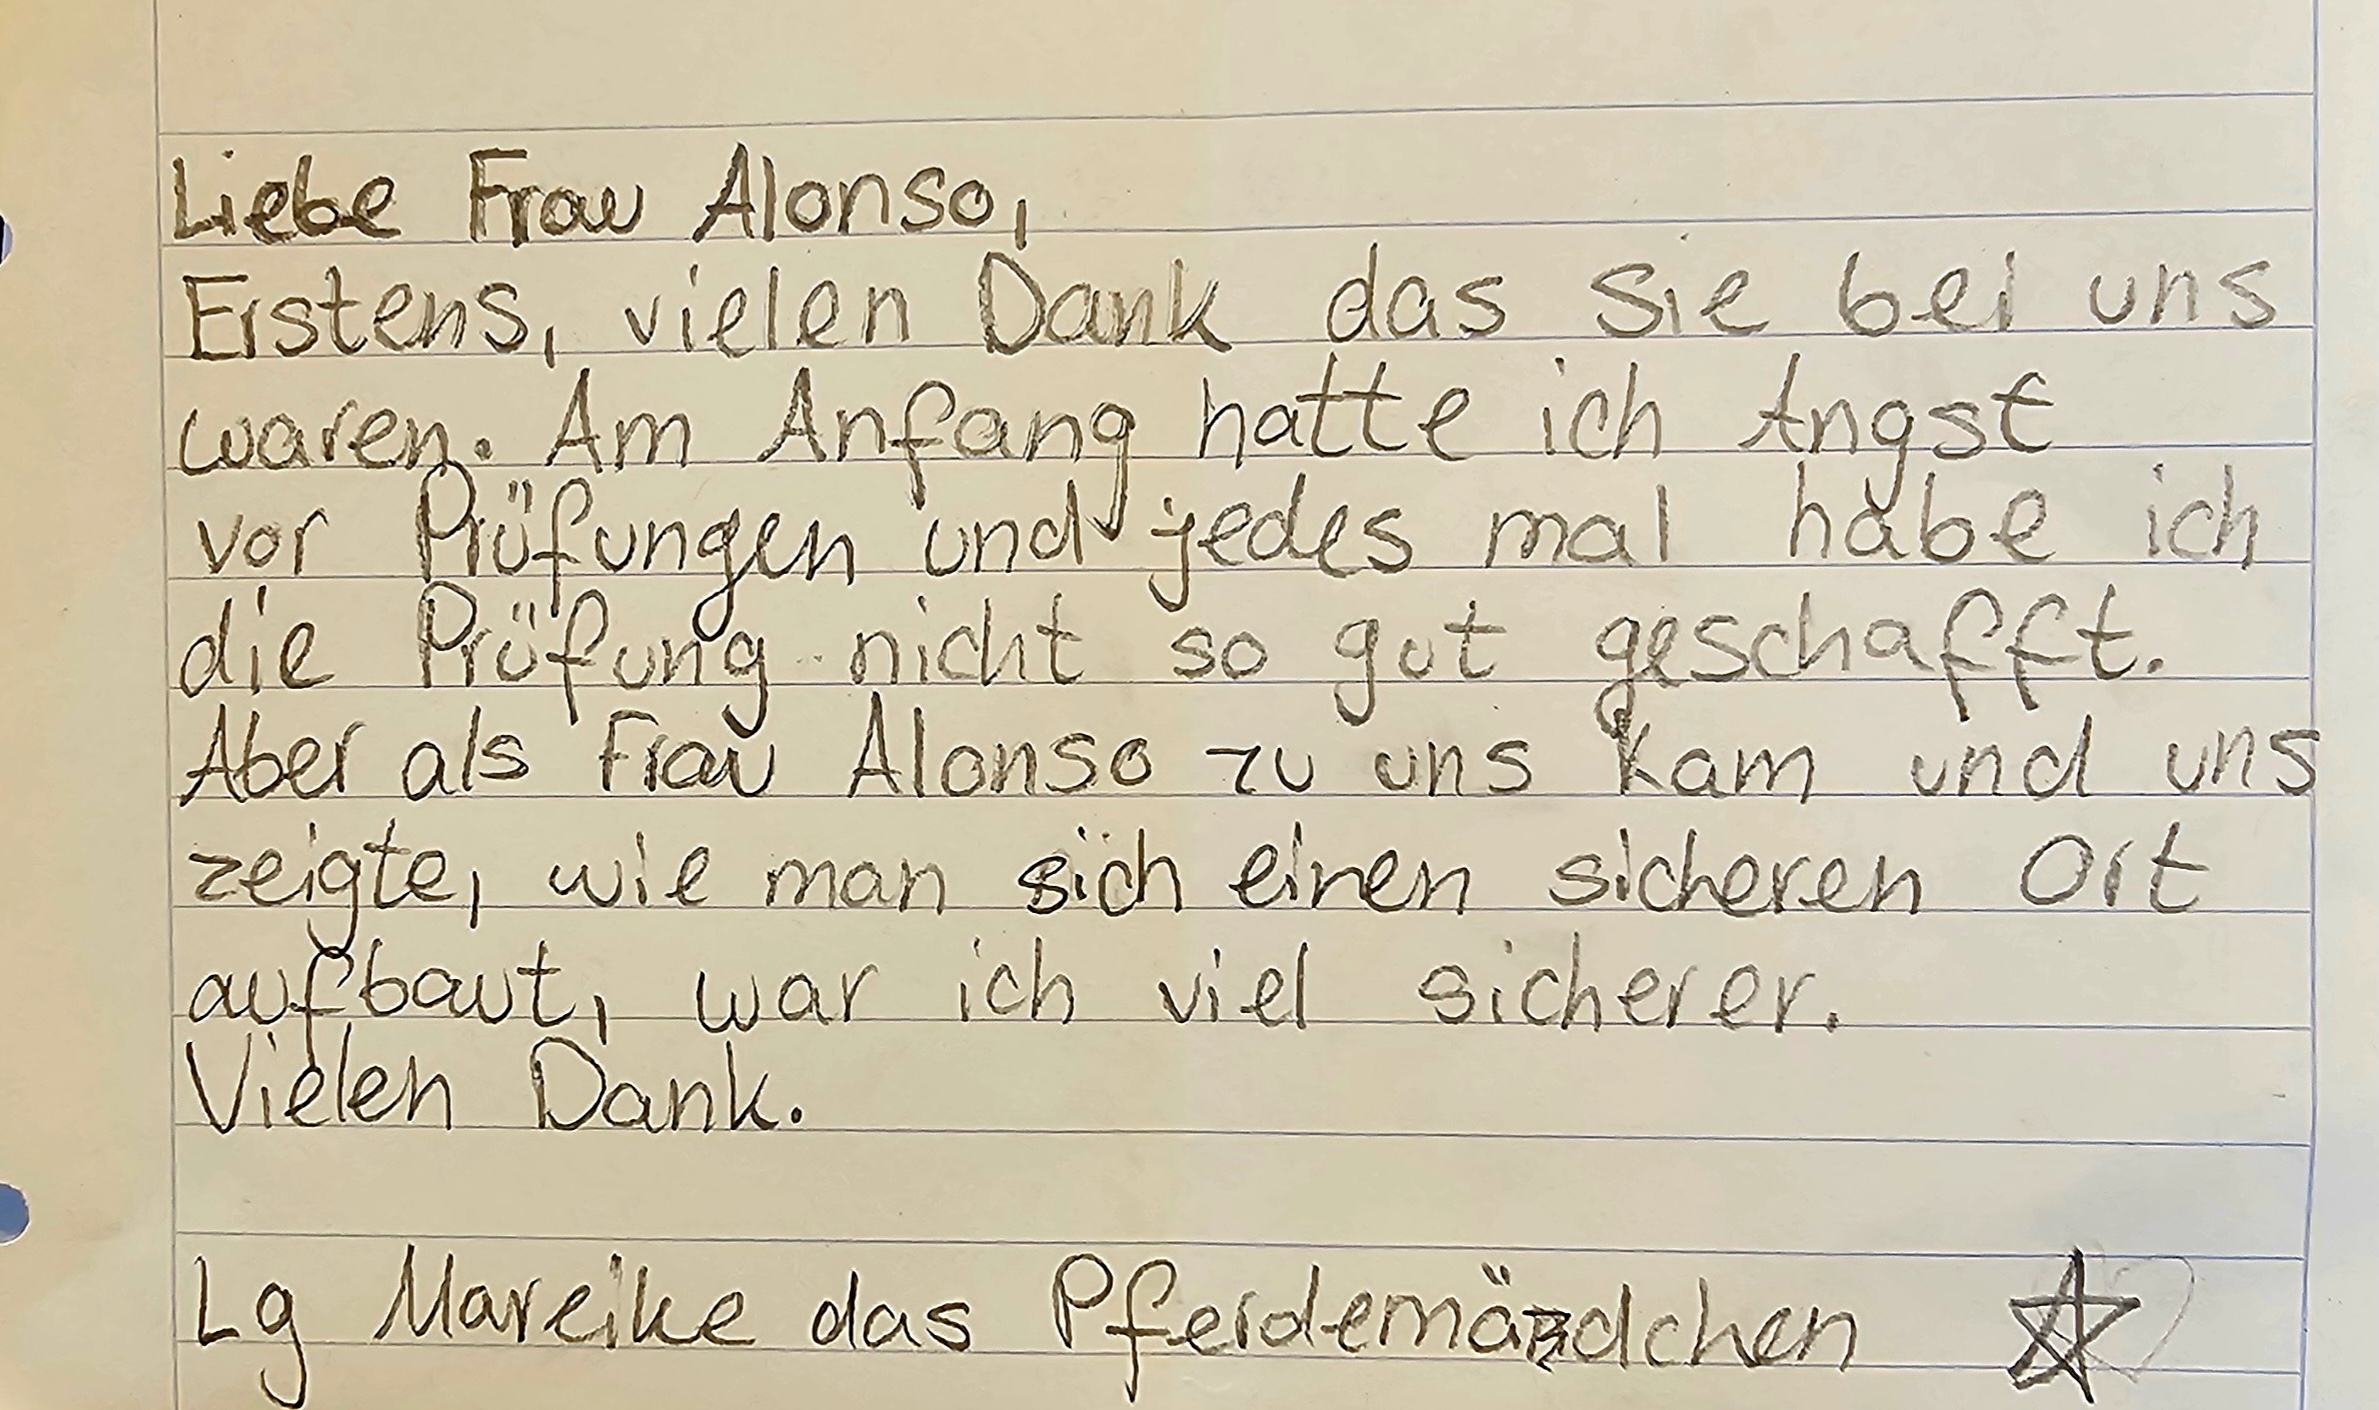 Liebe Frau Alonso,
Erstens, vielen Dank das sie bei uns
waren. Am Anfang hatte ich Angst
vor Prüfungen und jedes mal habe ich
die Prüfung nicht so gut geschafft.
Aber als Frau Alonso zu uns kam und uns
zeigte, wie man sich einen sicheren Ort
aufbaut, war ich viel sicherer.
Vielen Dank.
Lg Mareike das Pferdemädchen